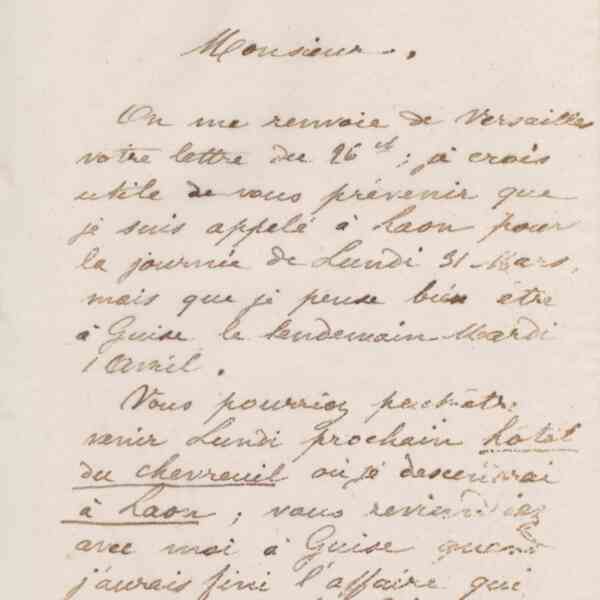 Monsieur.
On me renvoie de Versailles
votre lettre du 26 ct; je crois
utile de vous prévenir que
je suis appelé à Laon pour
la journée de Lundi 31 Mars,
mais que je pense bien être
à Guise le lendemain Mardi
1 Avril.
Vous pourriez peut-être
venir Lundi prochain hôtel
du chevreuil où je descendrai
à Laon ; vous reviendriez
avec moi à Guise quand
j'aurais fini l'affaire qui